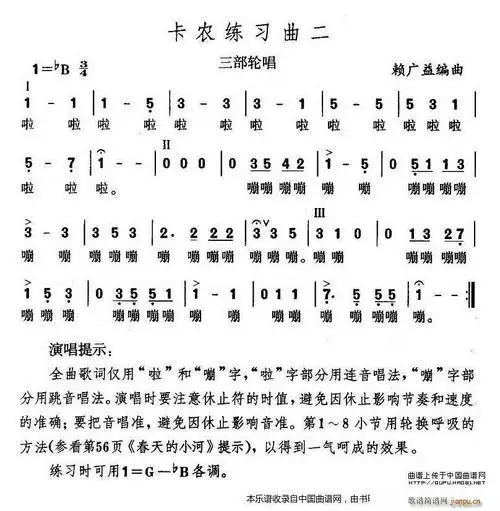 卡农练习曲二
三部轮唱
1=♭B 3/4
赖广益编曲
I
1 - 1 | 1 - 5 | 3 - 3 | 3 - 1 | 5 - 5 | 5 - 3 | 1 - 5 |
啦 啦 啦 啦 啦 啦 啦 啦 啦 啦 啦 啦 啦 啦
II
5 - 7 | 1 - | 0 0 0 | 0 35 42 | 0 1 5 | 0 51 13 |
啦 啦 啦。 嘣嘣嘣嘣 嘣 嘣 嘣嘣嘣嘣
III
3 - 3 | 3 5 3 | 2. 2 22 | 3 35 | 1 - 0 | 0 13 27 |
嘣 嘣 嘣嘣嘣 嘣 嘣嘣嘣 嘣嘣嘣 嘣 嘣嘣嘣嘣
1 5 3 | 0 35 51 | 1 - 1 | 0 1 1 | 7. 5 55 | 1 - :‖
嘣嘣嘣 嘣嘣嘣嘣 嘣 嘣 嘣嘣 嘣 嘣嘣嘣 嘣。
演唱提示:
全曲歌词仅用“啦”和“嘣”字,“啦”字部分用连音唱法,“嘣”字部
分用跳音唱法。演唱时要注意休止符的时值,避免因休止影响节奏和速度
的准确;要把音唱准,避免因休止影响音准。第1~8小节用轮换呼吸的
方法(参看第56页《春天的小河》提示),以得到一气呵成的效果。
练习时可用1=G—♭B各调。
曲谱上传于中国曲谱网
HTTP://QUPU.HAO21.NET
本乐谱收录自中国曲谱网,由书
歌谱简谱网
jianpu.cn